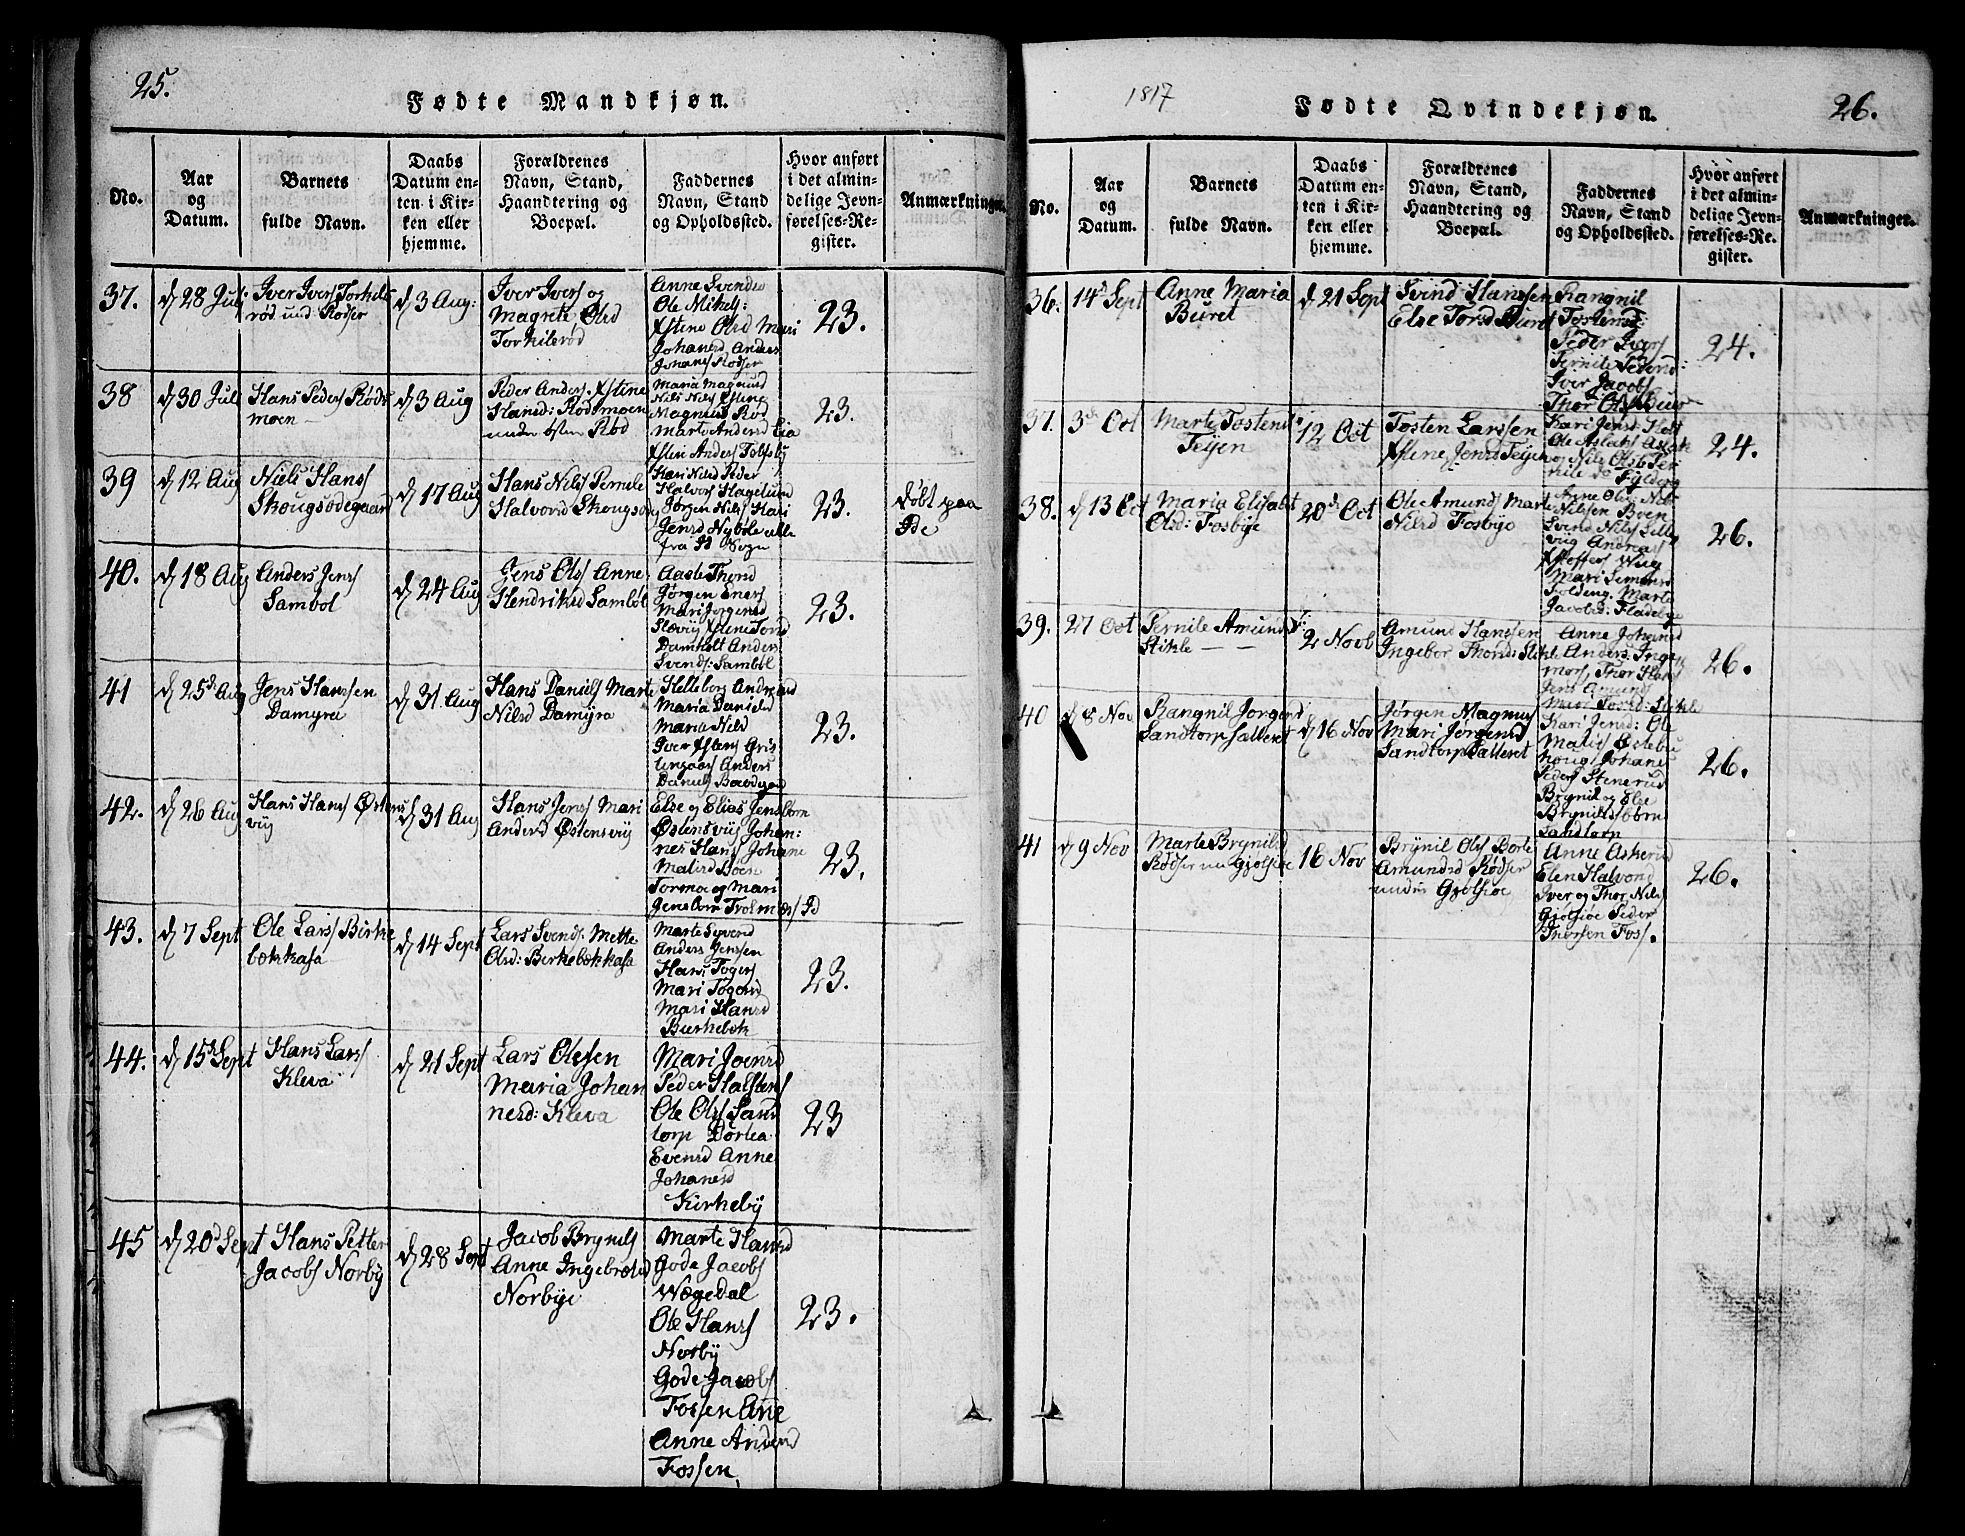 25.
Fødte Mandkjøn.
No.
Aar
og
Datum.
Barnets
fulde Navn.
Daabs
Datum en-
ten i Kir-
ken eller
hjemme.
Forældrenes
Navn, Stand,
Haandtering og
Boepæl.
Faddernes
Navn, Stand
og Opholdssted.
Hvor anført
i det almin-
delige Jevn-
førelses-Re-
gister.
Anmærkninger.
37.
d 28 Juli
Iver Ivers Torkils
rød und Rødser
d 3 Aug:
Iver Ivers og
Magrete Olsd
Torkilsrød
Anne Svends
Ole Mikels:
Xstine Olsd Mari
Johansd Anders
Johans Rødser
23.
38
d 30 Juli
Hans Peders Røds
moen
d 3 Aug
Peder Anders. Xstine
Hansd: Rødsmoen
under østen Rød
Maria Magnusd
Nils Nils
Magnus Rød
Marte Andersd Lia
Xsten Anders Folksby
23.
39
d 12 Aug
Niels Hans
Skougsødegaard
d 17 Aug
Hans Nils Pernele
Halvorsd Skougsød
Kari Nilsd Peder
Halvors Hagelund
Jørgen Nils Kari
Jensd Nybøle alle
fra Id Sogn
23.
døbt paa
Ide
40.
d 18 Aug
Anders Jens
Sambøl
d 24 Aug
Jens Ols Anne
Hendriksd Sambøl
Aaste Thorsd
Jørgen Eners
Mari Jørgensd
Slævig Xstine Torsd
Damholt Anders
Svends: Sambøl
23.
41
d 25de Aug
Jens Hanssen
Damyra
d 31 Aug
Hans Daniels Marte
Nilsd Damyra
Helleborg Andreasd
Maria Danielsd
Marte Nilsd
Iver Xstens Gris
lingaas Anders
Daniels
23.
42.
d 26 Aug
Hans Hans Østens
vig
d 31 Aug
Hans Jens Mari
Andersd Østensvig
Else og Elias Jensborn
Østensvig Johan:
nes Hans Johane
Matisd Boen
Tormoe og Mari
Jensborn Tvolmæs Id
23.
43.
d 7 Sept
Ole Lars Birke
bækkasa
d 14 Sept
Lars Svends. Mette
Olsd: Birkebækkasa
Marte Syversd
Anders Jenssen
Hans Togers
Mari Togersd
Mari Hansd
Birkebæk
23.
44.
d 15de Sept
Hans Lars
Kleva
d 21 Sept
Lars Olessen
Maria Johan
nesd: Kleva
Mari Joensd
Peder Halstens
Ole Ols Sand
torp Dortea
Evensd Anne
Johanesd
Kirkeby
23
45
d 20d Sept
Hans Petter
Jacobs Norby
d 28 Sept
Jacob Brynils
Anne Ingebretsd
Norbye
Marte Hansd
Gode Jacobs
Wægedal
Ole Hans
Norby
Gode Jacobs
Fossen Ane
Anne Andersd
Fossen
23.
1817
Fødte Qvindekjøn.
26.
No.
Aar
og
Datum.
Barnets
fulde Navn.
Daabs
Datum en-
ten i Kir-
ken eller
hjemme.
Forældrenes
Navn, Stand,
Haandtering og
Boepæl.
Faddernes
Navn, Stand
og Opholdssted.
Hvor anført
i det almin-
delige Jevn-
førelses-Re-
gister.
Anmærkninger.
36.
14d Sept
Anne Maria
Buret
d 21 Sept
Svend Hanssen
Else Torsd Buret
Rangnil
Tostensd:
Peder Ivers
Pernile Pedersd:
Iver Jacobs
Thor Ols Buer
24.
37.
3de Oct
Marte Tostensd:
Teijen
12 Oct
Tosten Larssen
Xstine Jensd Teijen
Kari Jensd Holt
Ole Aslaks Aslak
og Nils Olsb Per
nile
24.
38.
d 13 Oct
Maria Elisabet
Olsd: Fosbye
20d Oct
Ole Amunds Marte
Nilsd Fosbye
Anne Olsd: Nils
Nilsen Boen
Svend Nils Lille
viig Andreas
Xstoffers Wiig
Mari Semensd
Foldeng. Marte
Jacobsd: Fladebye
26.
39.
27 Oct
Pernile Amundsd:
Stikle
2 Novb
Amund Hanssen
Ingebor Thorsd: Stikle
Anne Johansd
Anders Ingem
mors, Thor Hans
Jens Amunds
Mari Torsd: Stikle
26.
40
d 8 Nov
Rangnil Jørgensd
Sandtorp salleret
d 16 Nov
Jørgen Magnus
Mari Jørgensd
Sandtorp Salleret
Kari Jensd: Ole
Matis Østebu
houg Johane
Peders Stenerud
Brynil og Else
Brynilds børn
Sandtorp
26.
41
d 9 Nov
Marte Brynilsd
Rødser un Gjølsiøe
16 Nov
Brynil Ols Borte
Amundsd Rødser
under Gjølsiøe
Anne Askersd
Elen Halvorsd
Iver og Thor Nils
Gjølsiøe Peder
Thorsen Foss.
26.